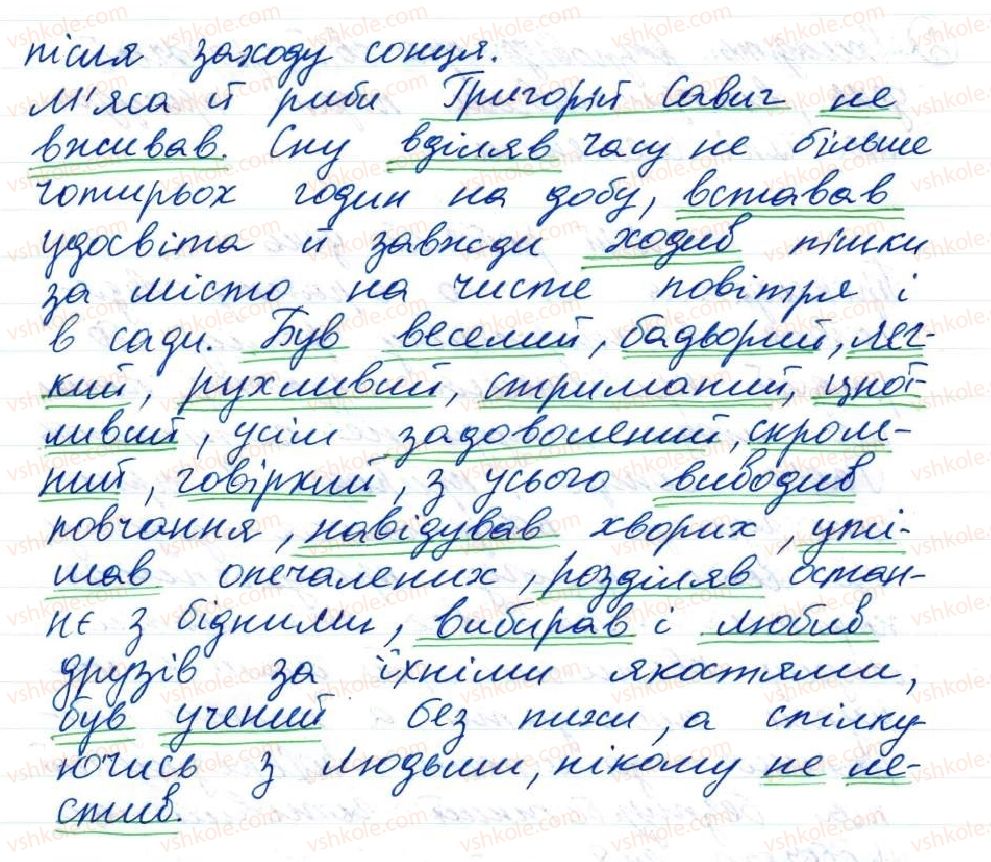 після заходу сонця.
М'яса й риби Григорій Савич не
вживав. Сну вділяв часу не більше
чотирьох годин на добу, вставав
удосвіта й завжди ходив пішки
за місто на чисте повітря і
в сади. Був веселий, бадьорий, лег-
кий, рухливий, стриманий, цнот-
ливий, усім задоволений, скром-
ний, говіркий, з усього виводив
повчання, навідував хворих, уті-
шав опечалених, розділяв остан-
нє з бідними, вибирав і любив
друзів за їхніми якостями,
був учений без пихи, а спілку
ючись з людьми, нікому не ле-
стив.